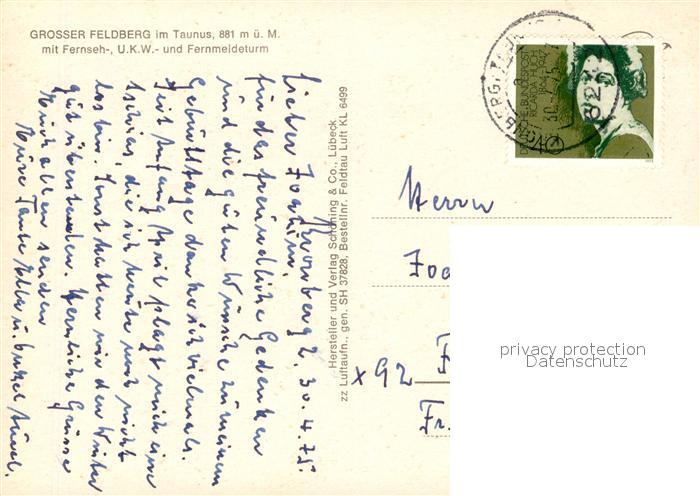 GROSSER FELDBERG im Taunus, 881 m ü. M.
mit Fernseh-, U.K.W.- und Fernmeldeturm
Kronberg 2, 30.4.75.
Lieber Joachim,
für das freundliche Gedenken
und die guten Wünsche zu meinem
Geburtstage danke ich vielmals.
Seit Anfang plagt mich eine
die ich heute noch nicht
los bin. Sonst hatten wir den Winter
gut überstanden. Herzliche Grüsse
Euch allen senden
Eure Tante u. Onkel
Hersteller und Verlag Schöning & Co., Lübeck
zz Luftaufn., gen. SH 37828, Bestellnr. Feldtau Luft KL 6499
DEUTSCHE BUNDESPOST
RICARDA HUCH
1864-1947
40
Herrn
Joa
x 92 F
Fr.
privacy protection
Datenschutz